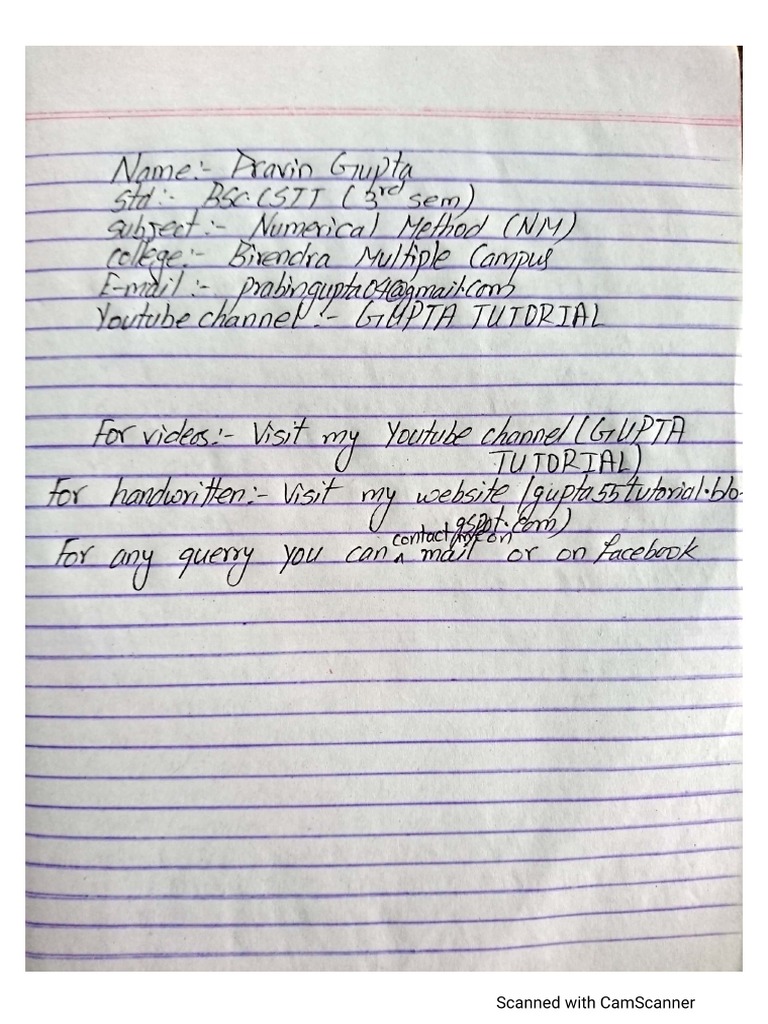 Name:- Pravin Gupta
Std:- BSC.CSIT (3rd sem)
subject:- Numerical Method (NM)
college:- Birendra Multiple Campus
E-mail:- prabingupta04@gmail.com
Youtube channel:- GUPTA TUTORIAL
For videos:- Visit my Youtube channel (GUPTA
TUTORIAL)
For handwritten:- Visit my website (gupta55tutorial.blo-
gspot.com)
For any querry you can contact me on mail or on facebook
Scanned with CamScanner